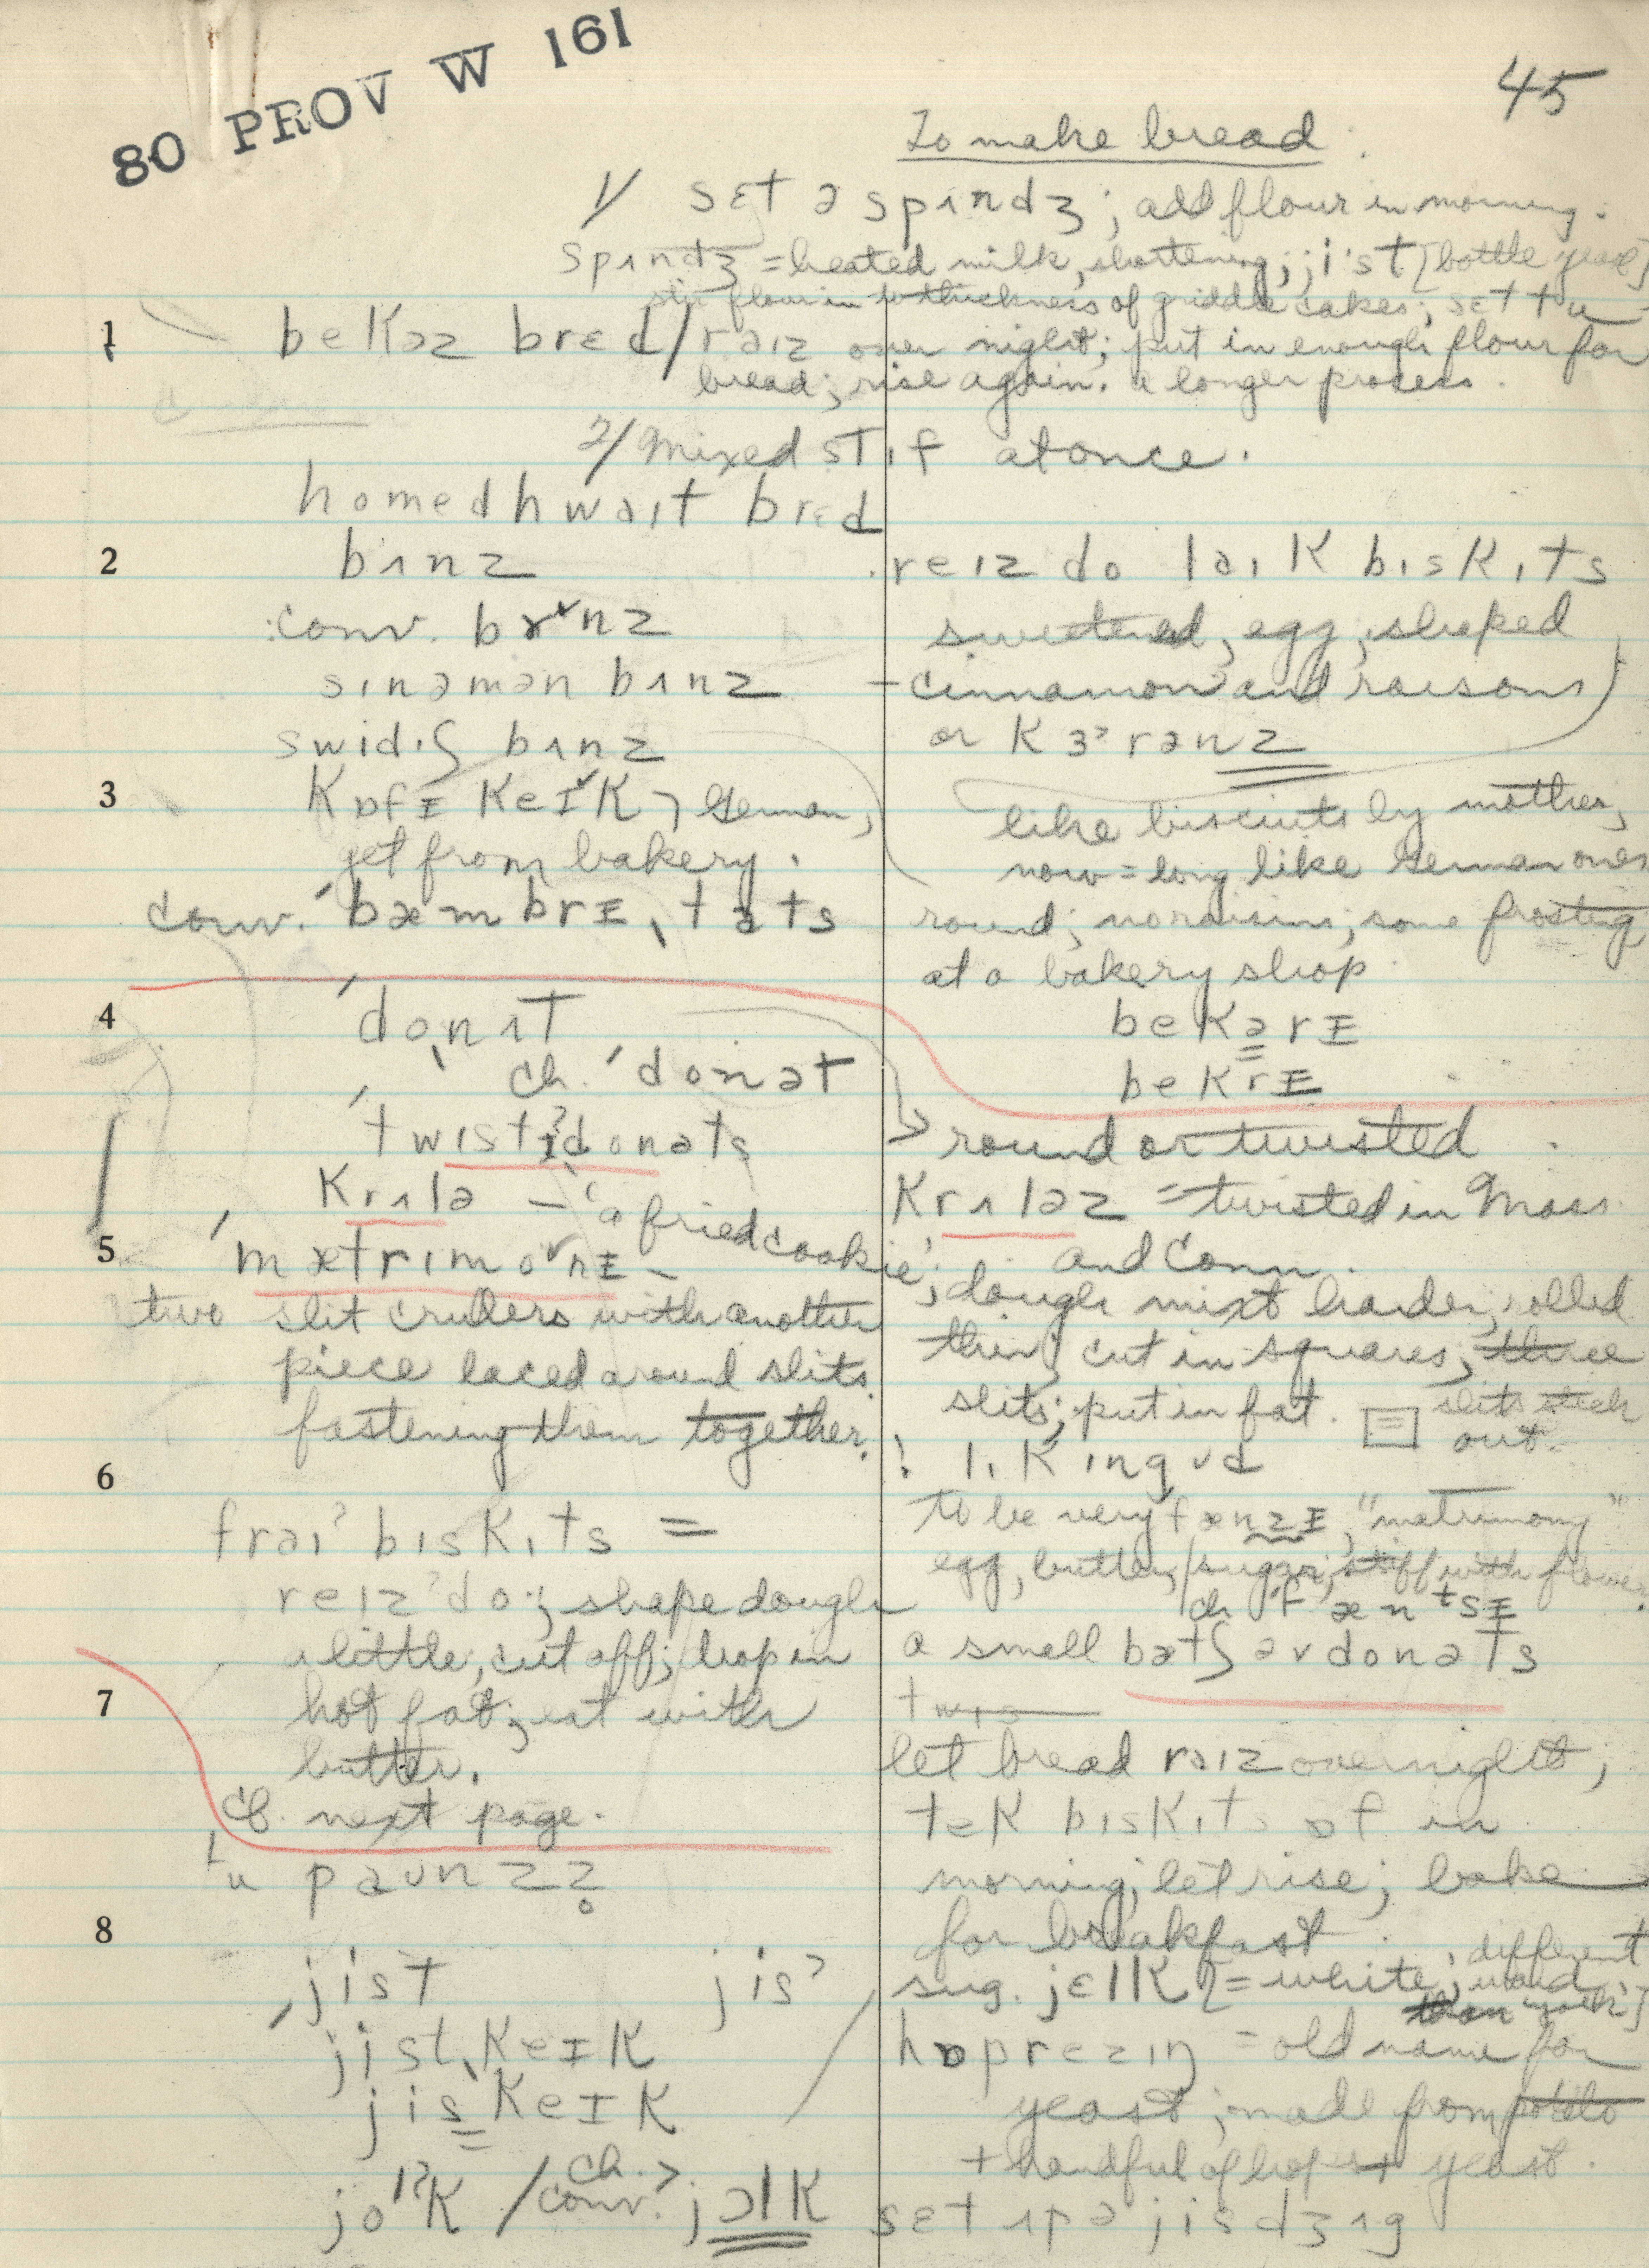 80 PROV W 161
45
To make bread
1/ sɛt ə spʌndʒ; add flour in morning.
spʌndʒ = heated milk, shortening; jist [bottle yeast]
stir flour in to thickness of griddle cakes; sɛt tu
1 bekəz brɛd / raɪz over night; put in enough flour for
bread; rise again. a longer process.
2/ Mixed stɪf at once.
homed hwaɪt brɛd
2 bʌnz
conv. bʌnz
sɪnəmən bʌnz
swidɪʃ bʌnz
reɪz do laɪk bɪskɪts
sweetened, egg, shaped
– cinnamon and raisons
or kɜrənz
3 kɒfɪ keɪk, German,
get from bakery.
conv. ˈbæmbrɪˌtəts
like biscuits by mother,
now = long like German ones
round; no raisins; some frosting
at a bakery shop
bekərɪ
bekrɪ
4 ˈdoˌnʌt
ch. ˈdonət
ˈtwɪstɪdˌonəts
krʌlə – 'a fried cookie';
round or twisted
krʌləz = twisted in Mass.
and Conn.
5 ˈmætrɪmonɪ –
two slit crullers with another
piece laced around slits
fastening them together.
dough mixt harder, rolled
thin; cut in squares; three
slits; put in fat. slits stick
out.
6 fraɪ bɪskɪts =
reɪz do; shape dough
a little, cut off; drop in
hot fat; eat with
butter.
cf. next page.
to be very fænzɪ, "matrimony"
egg, butter, sugar, stiff with flour.
ch ˈfæntsɪ
a small bætʃ əv donəts
7 let bread raɪz overnight;
tek bɪskɪts ɒf in
morning; let rise; bake
for breakfast.
tu paʊnzz
8 jist jis
jistˌkeɪk
jisˌkeɪk
jolk / ch. conv. > jɔlk
sug. jɛlk [= white; different
word than "yolk"]
hɒp rezɪŋ = old name for
yeast; made from potato
+ handful of hops + yeast.
sɛt ʌp ə jisdʒʌg